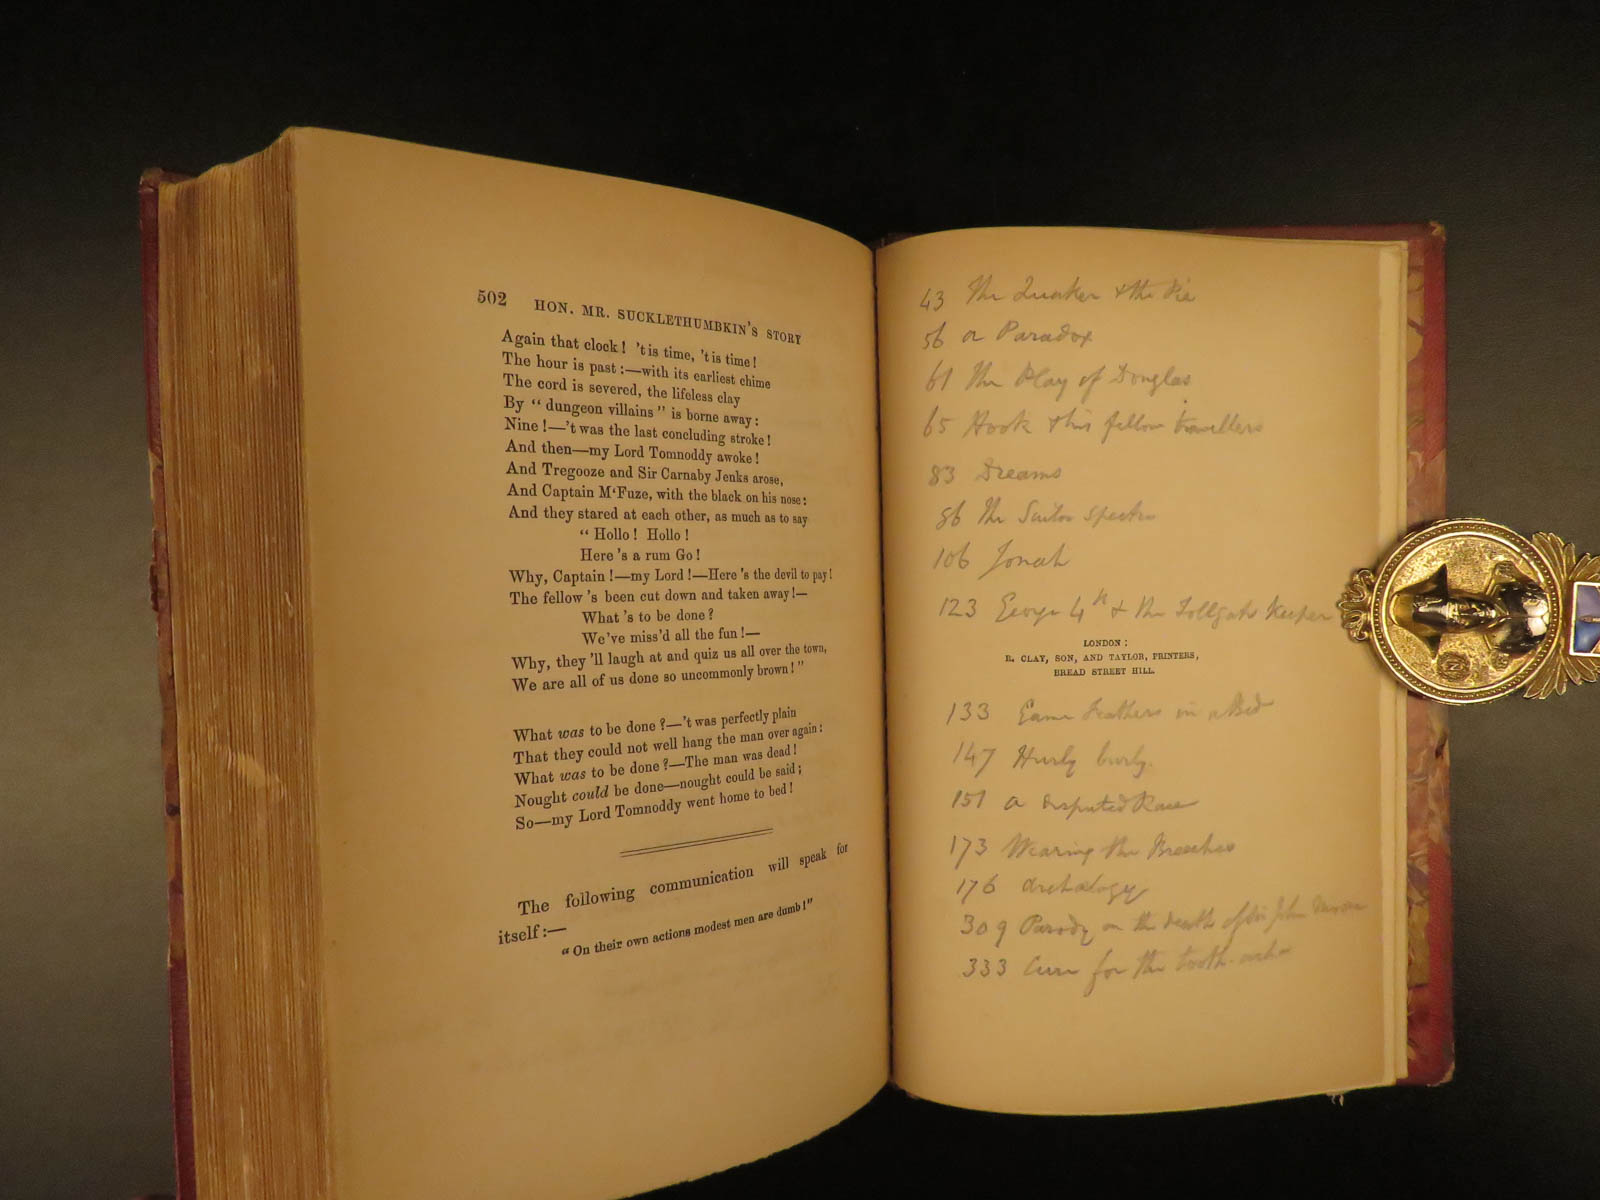 502 HON. MR. SUCKLETHUMBKIN'S STORY
Again that clock! 't is time, 't is time!
The hour is past:—with its earliest chime
The cord is severed, the lifeless clay
By "dungeon villains" is borne away:
Nine!—'t was the last concluding stroke!
And then—my Lord Tomnoddy awoke!
And Tregooze and Sir Carnaby Jenks arose,
And Captain M'Fuze, with the black on his nose:
And they stared at each other, as much as to say
"Hollo! Hollo!
Here 's a rum Go!
Why, Captain!—my Lord!—Here 's the devil to pay!
The fellow 's been cut down and taken away!—
What 's to be done?
We 've miss'd all the fun!—
Why, they 'll laugh at and quiz us all over the town,
We are all of us done so uncommonly brown!"
What was to be done?—'t was perfectly plain
That they could not well hang the man over again:
What was to be done?—The man was dead!
Nought could be done—nought could be said;
So—my Lord Tomnoddy went home to bed!
The following communication will speak for
itself:—
"On their own actions modest men are dumb!"
43 The Quaker & the Pie
56 a Paradox
61 The Play of Douglas
65 Hook & his fellow travellers
83 Dreams
86 The Suitor spectre
106 Jonah
123 George 4th & the Tollgate Keeper
LONDON:
R. CLAY, SON, AND TAYLOR, PRINTERS,
BREAD STREET HILL.
133 Feathers in a Bed
147 Hurly burly.
151 a disputed Race
173 Wearing the Breeches
176 Archælogy
309 Parody on the death of Sir John Moore
333 Cure for the tooth-ache